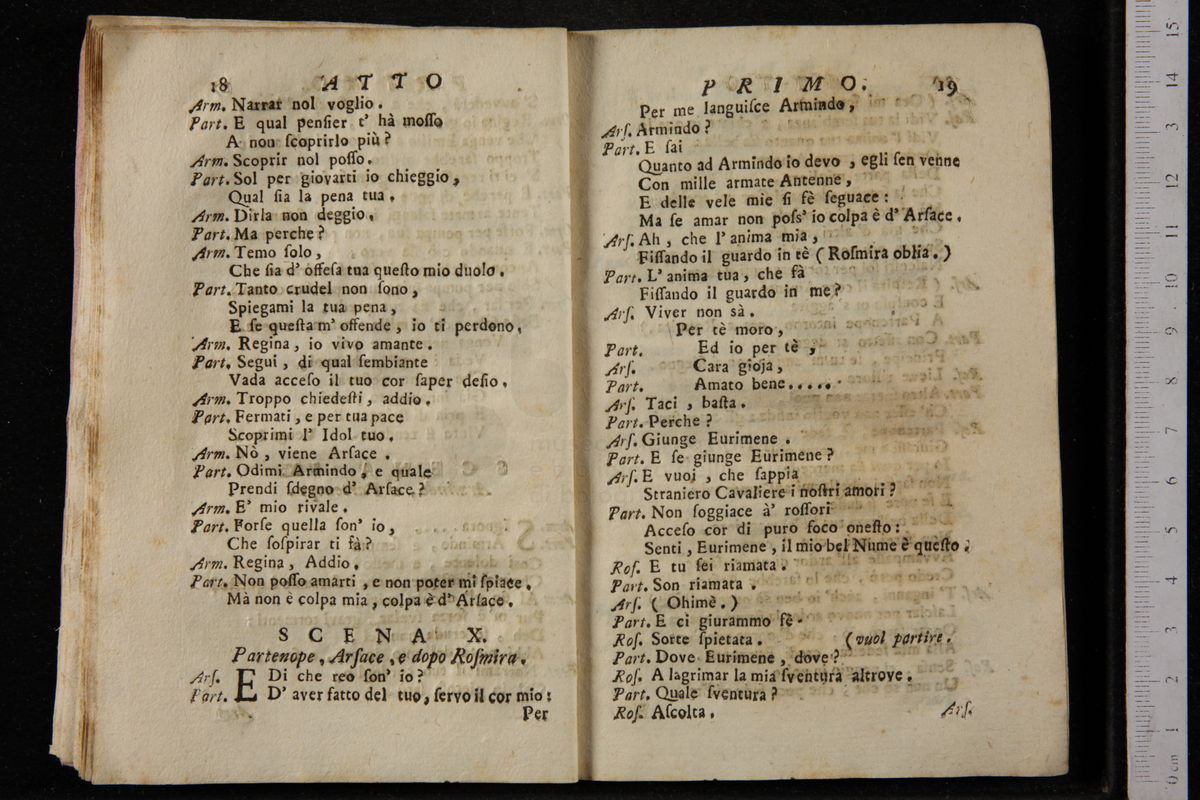 18 ATTO
Arm. Narrar nol voglio.
Part. E qual penſier t' hà moſſo
A non ſcoprirlo più?
Arm. Scoprir nol poſſo.
Part. Sol per giovarti io chieggio,
Qual ſia la pena tua.
Arm. Dirla non deggio.
Part. Ma perche?
Arm. Temo ſolo,
Che ſia d' offeſa tua queſto mio duolo.
Part. Tanto crudel non ſono,
Spiegami la tua pena,
E ſe queſta m' offende, io ti perdono.
Arm. Regina, io vivo amante.
Part. Segui, di qual ſembiante
Vada acceſo il tuo cor ſaper deſio.
Arm. Troppo chiedeſti, addio.
Part. Fermati, e per tua pace
Scoprimi l' Idol tuo.
Arm. Nò, viene Arſace.
Part. Odimi Armindo, e quale
Prendi ſdegno d' Arſace?
Arm. E' mio rivale.
Part. Forſe quella ſon' io,
Che ſoſpirar ti fà?
Arm. Regina, Addio.
Part. Non poſſo amarti, e non poter mi ſpiace.
Mà non è colpa mia, colpa è d' Arſace.
SCENA X.
Partenope, Arſace, e dopo Roſmira.
Arſ. E Di che reo ſon' io?
Part. D' aver fatto del tuo, ſervo il cor mio:
Per
PRIMO. 19
Per me languiſce Armindo,
Arſ. Armindo?
Part. E ſai
Quanto ad Armindo io devo, egli ſen venne
Con mille armate Antenne,
E delle vele mie ſi fè ſeguace:
Ma ſe amar non poſs' io colpa è d' Arſace.
Arſ. Ah, che l' anima mia,
Fiſſando il guardo in tè (Roſmira oblia.)
Part. L' anima tua, che fà
Fiſſando il guardo in me?
Arſ. Viver non sà.
Per tè moro,
Part. Ed io per tè,
Arſ. Cara gioja,
Part. Amato bene.....
Arſ. Taci, baſta.
Part. Perche?
Arſ. Giunge Eurimene.
Part. E ſe giunge Eurimene?
Arſ. E vuoi, che ſappia
Straniero Cavaliere i noſtri amori?
Part. Non ſoggiace à' roſſori
Acceſo cor di puro foco oneſto:
Senti, Eurimene, il mio bel Nume è queſto.
Roſ. E tu ſei riamata.
Part. Son riamata.
Arſ. (Ohimè.)
Part. E ci giurammo fè.
Roſ. Sorte ſpietata. (vuol partire.
Part. Dove Eurimene, dove?
Roſ. A lagrimar la mia ſventura altrove.
Part. Quale ſventura?
Roſ. Aſcolta.
Arſ.